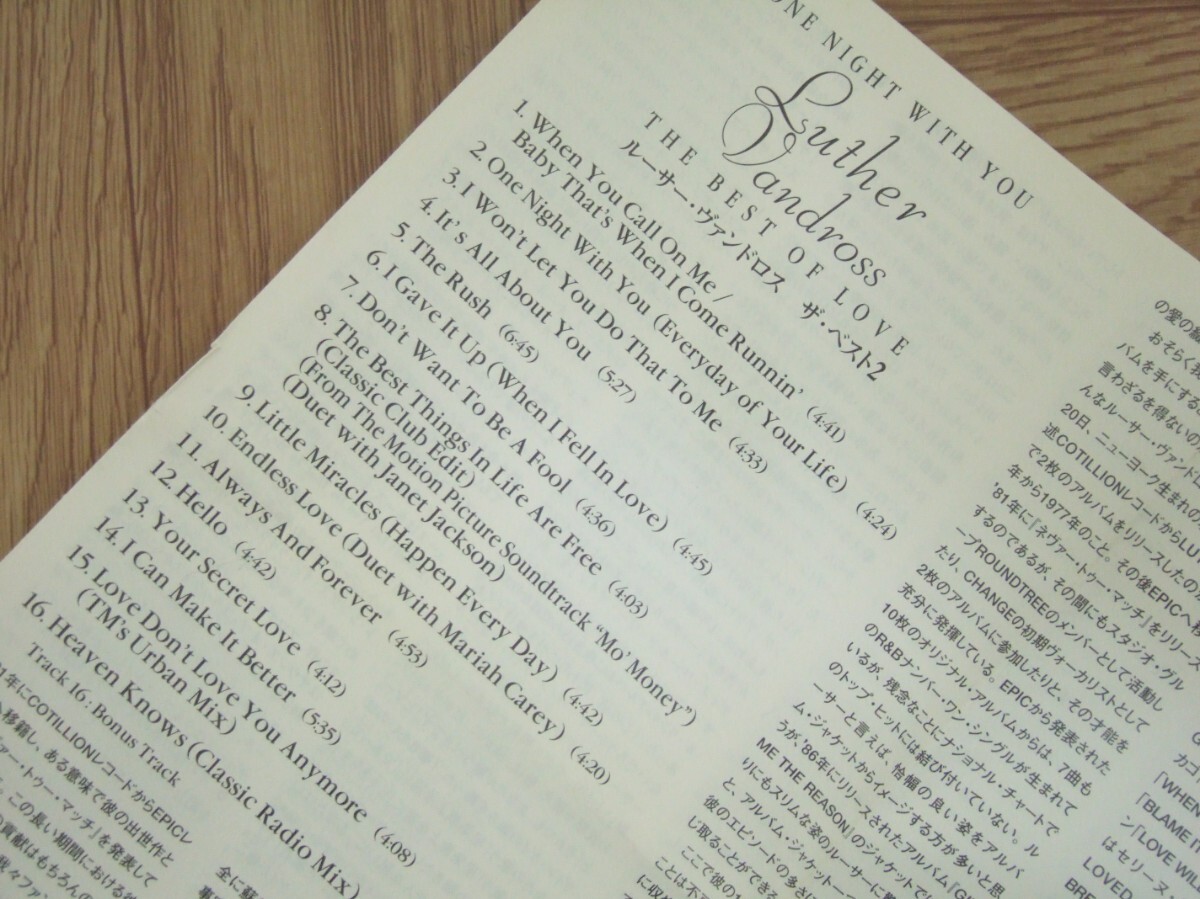 ONE NIGHT WITH YOU
Luther
Vandross
THE BEST OF LOVE
ルーサー・ヴァンドロス ザ・ベスト2
1. When You Call On Me /
Baby That's When I Come Runnin' (4:41)
2. One Night With You (Everyday of Your Life) (4:24)
3. I Won't Let You Do That To Me (4:33)
4. It's All About You (5:27)
5. The Rush (6:45)
6. I Gave It Up (When I Fell In Love) (4:45)
7. Don't Want To Be A Fool (4:36)
8. The Best Things In Life Are Free (4:03)
(Classic Club Edit)
(From The Motion Picture Soundtrack "Mo' Money")
(Duet with Janet Jackson)
9. Little Miracles (Happen Every Day) (4:42)
10. Endless Love (Duet with Mariah Carey) (4:20)
11. Always And Forever (4:53)
12. Hello (4:42)
13. Your Secret Love (4:12)
14. I Can Make It Better (5:35)
15. Love Don't Love You Anymore (4:08)
(TM's Urban Mix)
16. Heaven Knows (Classic Radio Mix)
Track 16 : Bonus Track
1年にCOTILLIONレコードからEPICレ
移籍し、ある意味で彼の出世作と
ァー・トゥー・マッチ』を発表して
。この長い期間における彼
貢献はもちろんの
我々ファン
全に蘇
の愛の
おそらく
バムを手にする
言わざるを得ないの
んなルーサー・ヴァンド
20日、ニューヨーク生まれの
述COTILLIONレコードからLU
で2枚のアルバムをリリースしたの
年から1977年のこと。その後EPICへ移
'81年に『ネヴァー・トゥー・マッチ』をリリース
するのであるが、その間にもスタジオ・グル
ープROUNDTREEのメンバーとして活動し
たり、CHANGEの初期ヴォーカリストとして
2枚のアルバムに参加したりと、その才能を
充分に発揮している。EPICから発表された
10枚のオリジナル・アルバムからは、7曲も
のR&Bナンバー・ワン・シングルが生まれて
いるが、残念なことにナショナル・チャートで
のトップ・ヒットには結び付いていない。ル
ーサーと言えば、恰幅の良い姿をアルバ
ム・ジャケットからイメージする方が多いと思
うが、'86年にリリースされたアルバム『GI
ME THE REASON』のジャケットで
りにもスリムな姿のルーサーに
と、アルバム・ジャケット一
彼のエピソードの多さに
じ取ることができる
ここで彼の1
ことは不
に収
カゴ
「WHEN
「BLAME I
ン「LOVE WIL
はセリーヌ・
LOVED
BRE